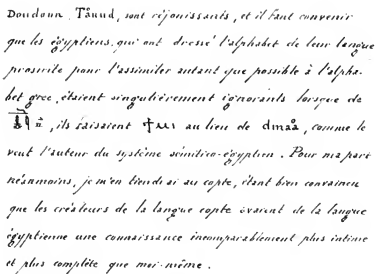 Doudoun. Tȧuud, sont réjouissants, et il faut convenir
que les égyptiens, qui ont dressé l'alphabet de leur langue
proscrite pour l'assimiler autant que possible à l'alpha-
bet grec, étaient singulièrement ignorants lorsque de
, ils faisaient ϯⲙⲓ au lieu de dmaȧ, comme le
veut l'auteur du système sémitico-égyptien. Pour ma part
néanmoins, je m'en tiendrai au copte, étant bien convaincu
que les créateurs de la langue copte avaient de la langue
égyptienne une connaissance incomparablement plus intime
et plus complète que moi-même.